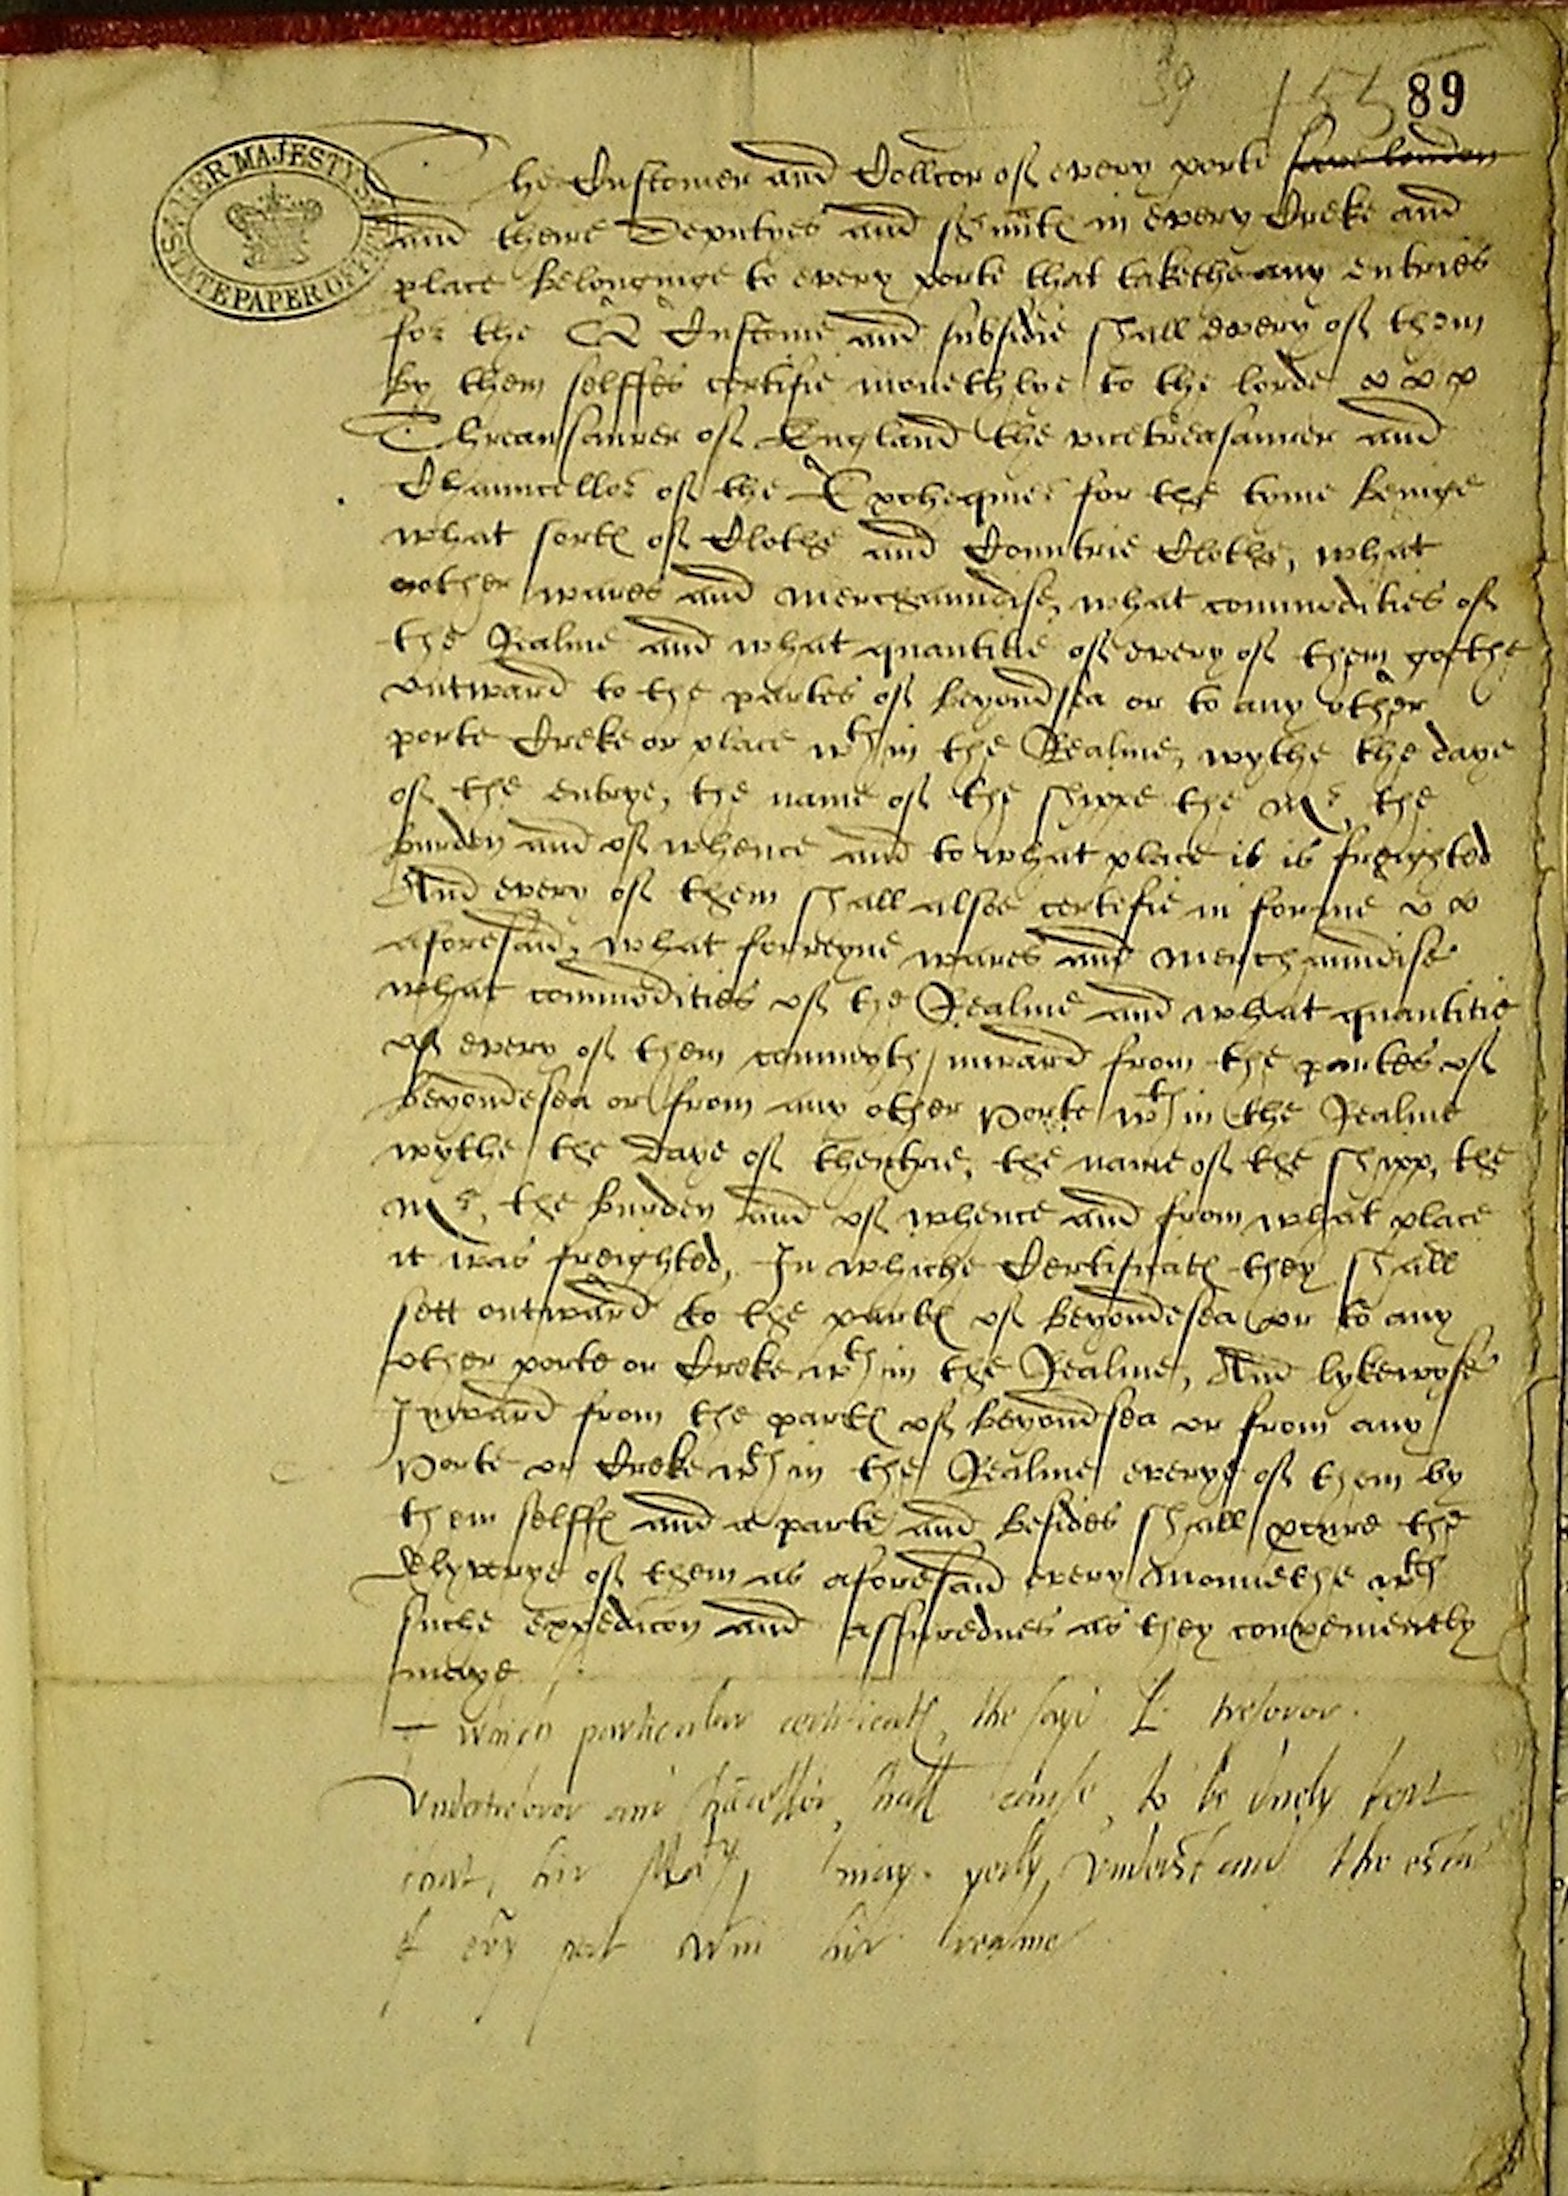 39 155 89
HER MAJESTY'S STATE PAPER OFFICE
The Customer and Collcor of every porte save london
and theire Deputyes and in every Creke and
place belonginge to every porte that takethe any entries
for the Q Custome and subsidie shall every of them
by them selffes certifie monethlye to the lorde
Threausaurer of England the vicetreasaurer and
Chauncellor of the Exchequier for the tyme beinge
what sort of Clothe and Countrie Clothe, what
other wares and merchaundise, what commodities of
the Realme and what quantitie of every of them goethe
outward to the partes of beyond sea or to any other
porte Creke or place wth in the Realme, wythe the daye
of the entrye, the name of the shippe the Mr, the
burden and of whence and to what place it is freighted
And every of them shall alsoe certefie in forme
aforesaid, what forreyne wares and merchaundise
what commodities of the Realme and what quantitie
of every of them commyth inward from the partes of
beyondesea or from any other Porte wth in the Realme
wythe the daye of thentrie, the name of the shipp, the
Mr, the burden and of whence and from what place
it was freighted, In whiche Certificat they shall
sett outward to the part of beyondesea or to any
other porte or Creke wth in the Realme, And lykewyse
Inward from the part of beyond sea or from any
Porte or Creke wth in the Realme everye of them by
them selff and a parte and besides shall pcure the
delyverye of them as aforesaid every monnethe wth
suche expedicon and assurednes as they conveniently
maye
which particular certificat the sayd L. tresoror
undertresoror and shall cause to be duely kept
that hir Maty may understand the estat
of ev'y port wtin hir realme